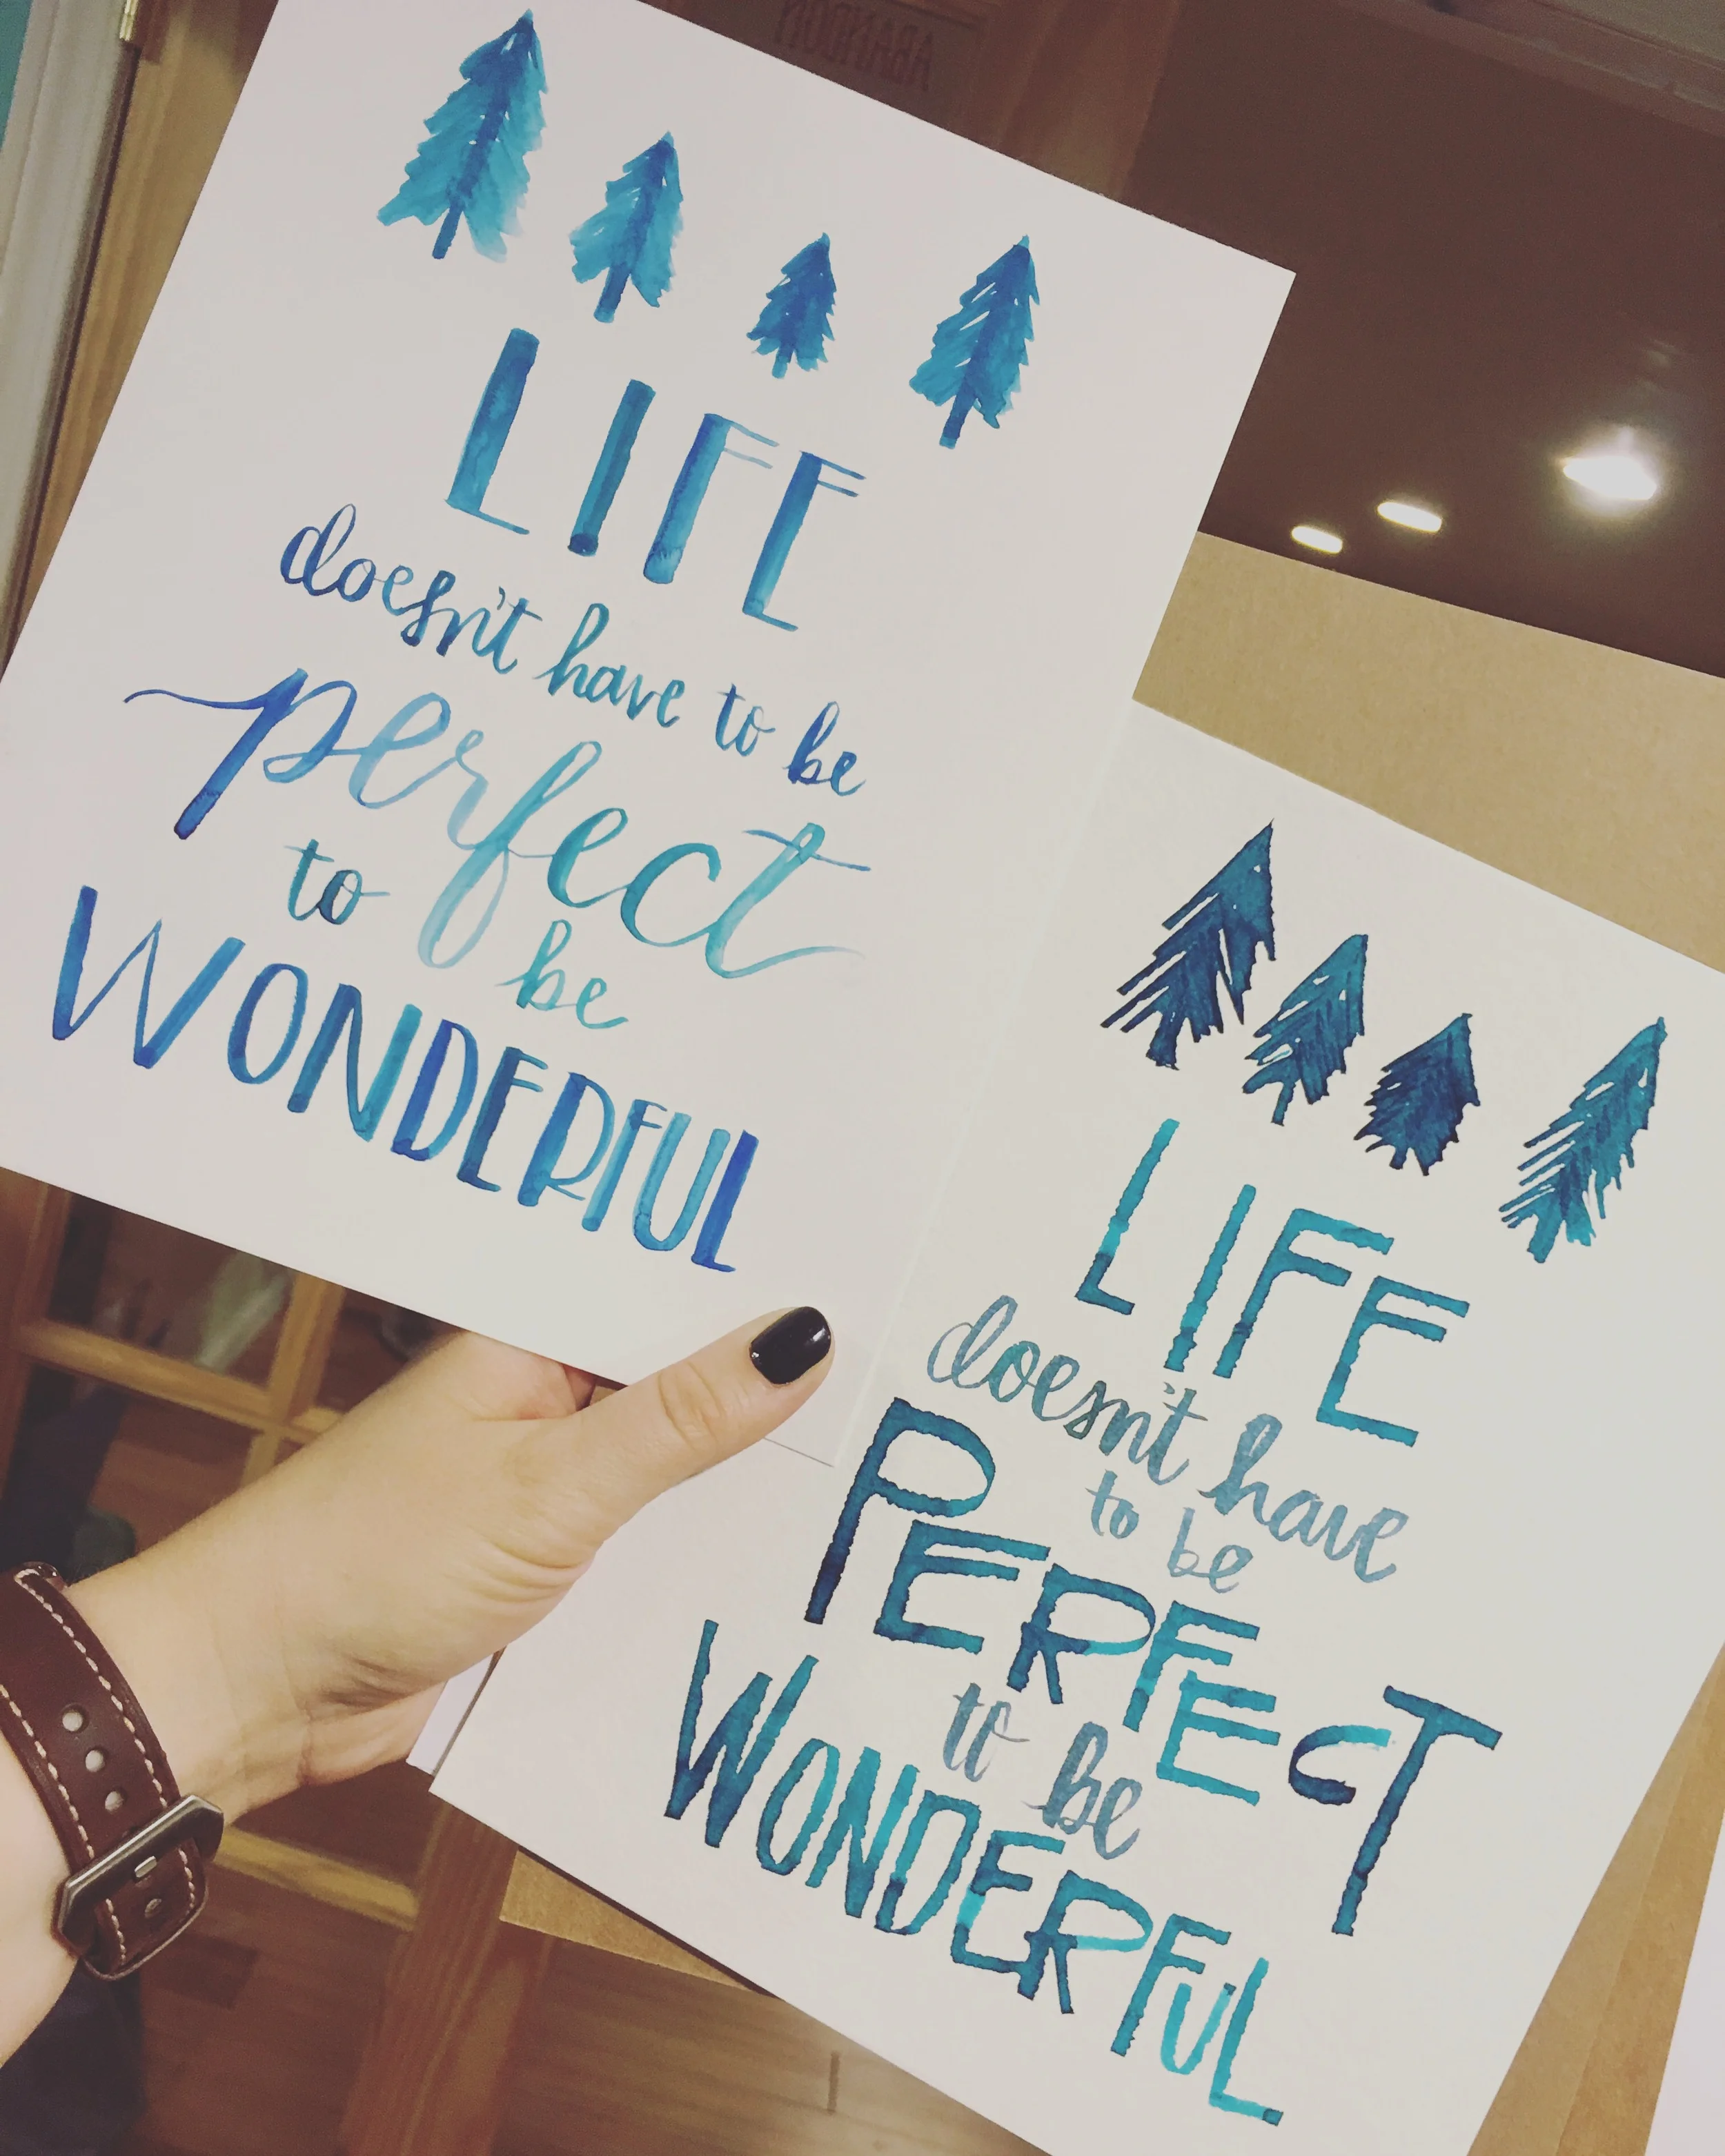 LIFE
doesn't have to be
perfect
to be
WONDERFUL
LIFE
doesn't have
to be
PERFEcT
to be
WONDERFUL